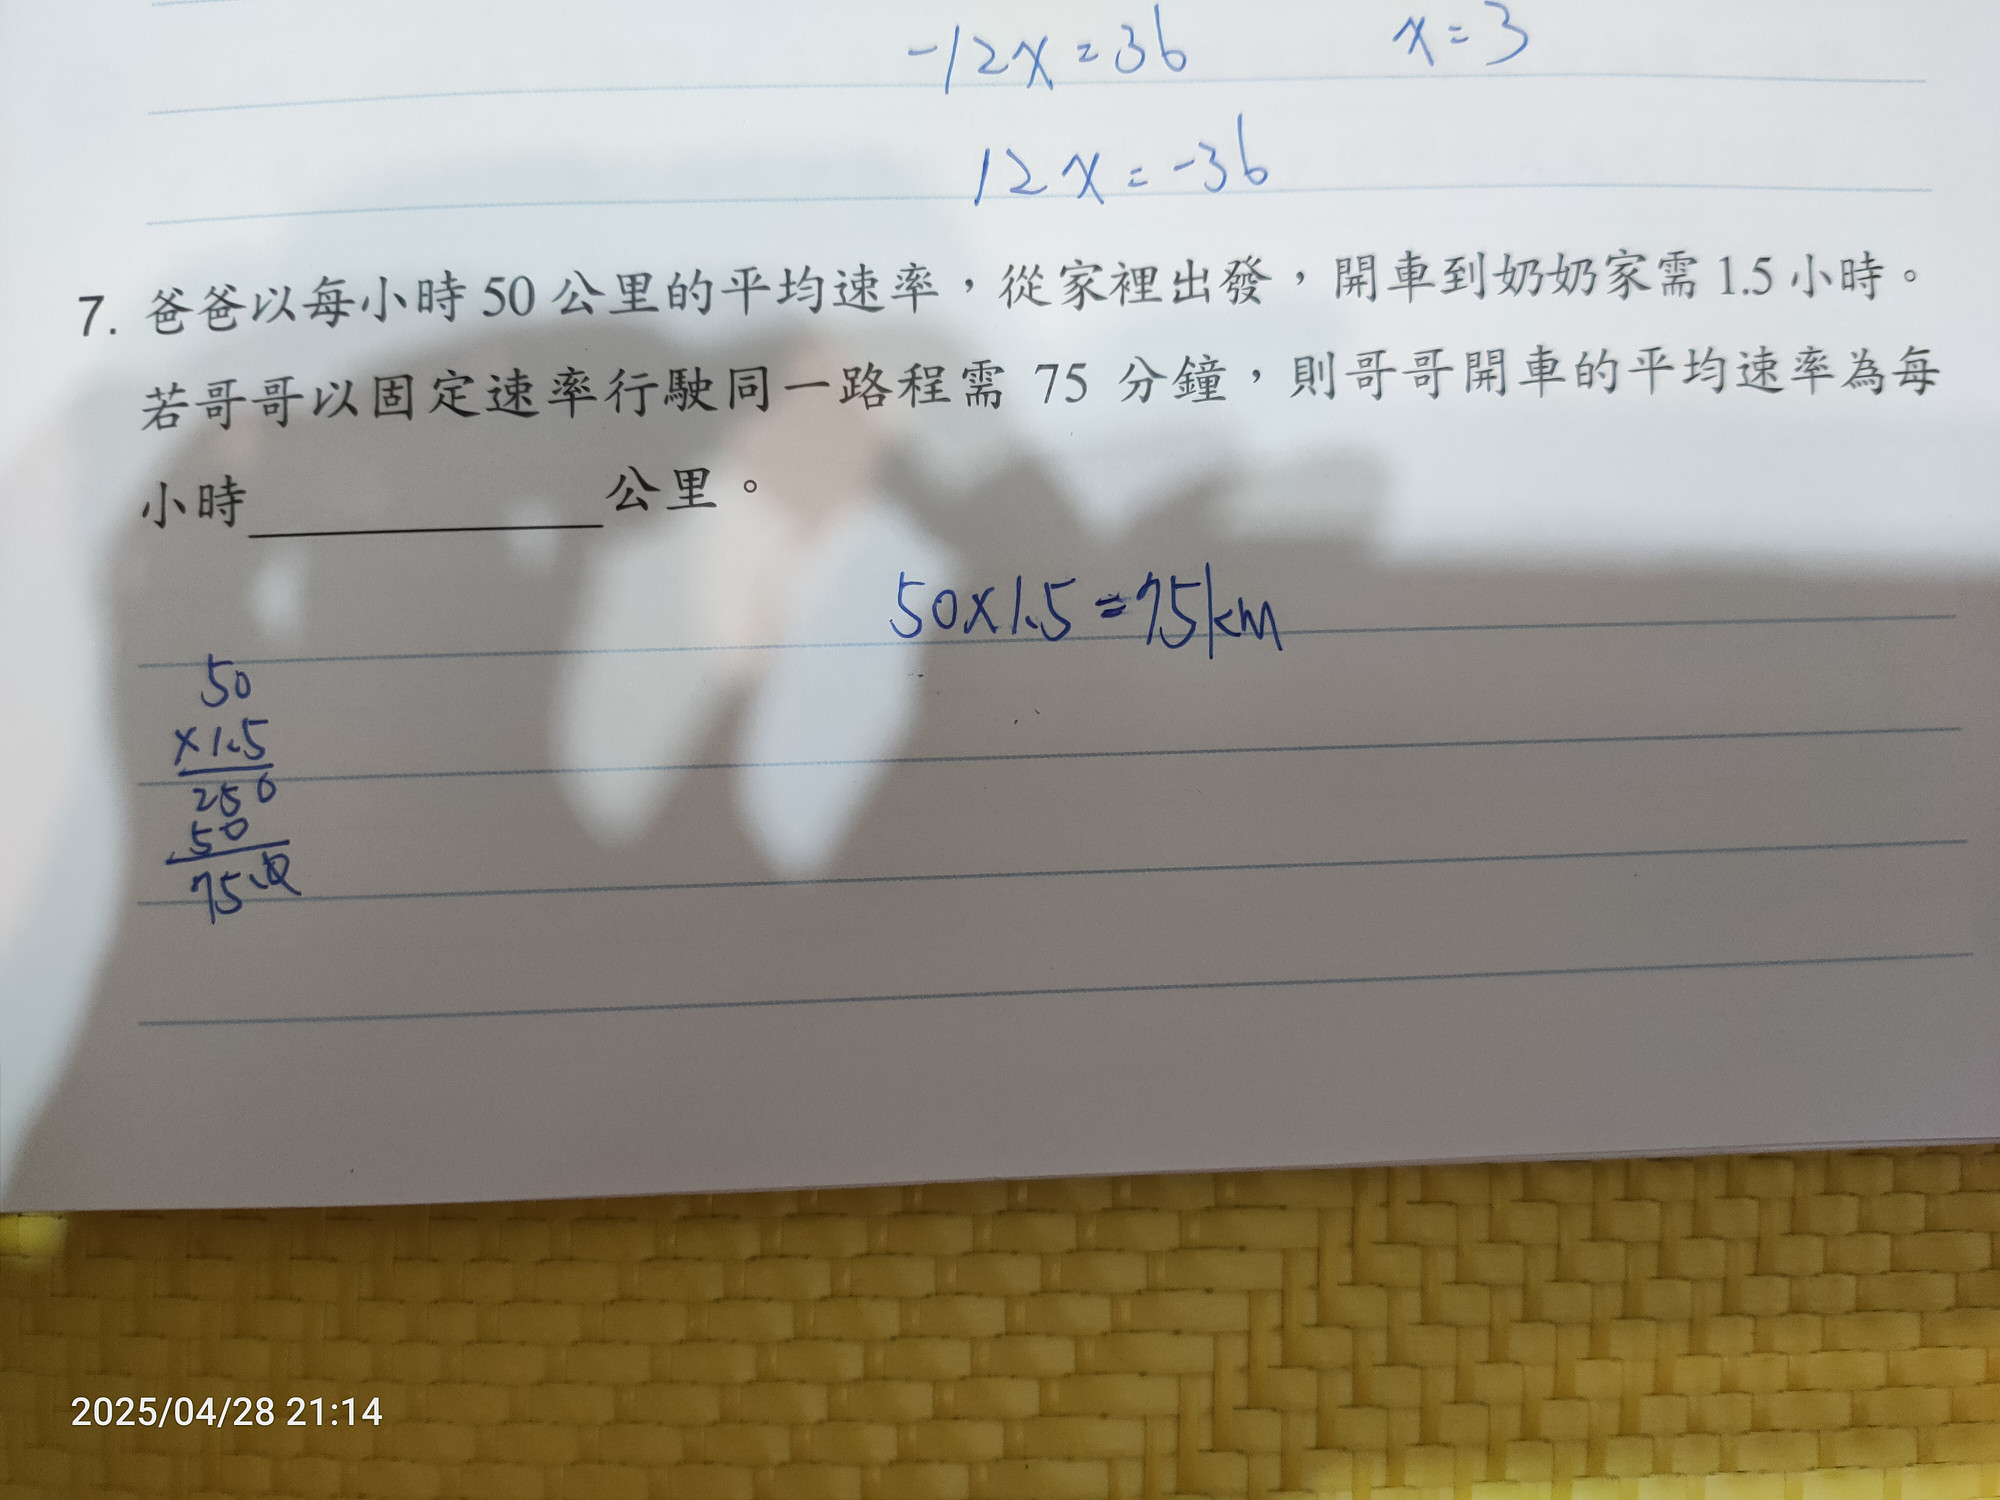 -12x=36 x=3
12x=-36
7. 爸爸以每小時50公里的平均速率，從家裡出發，開車到奶奶家需1.5小時。
若哥哥以固定速率行駛同一路程需 75 分鐘，則哥哥開車的平均速率為每
小時__________公里。
50×1.5=75km
50
×1.5
250
50
75.0
2025/04/28 21:14